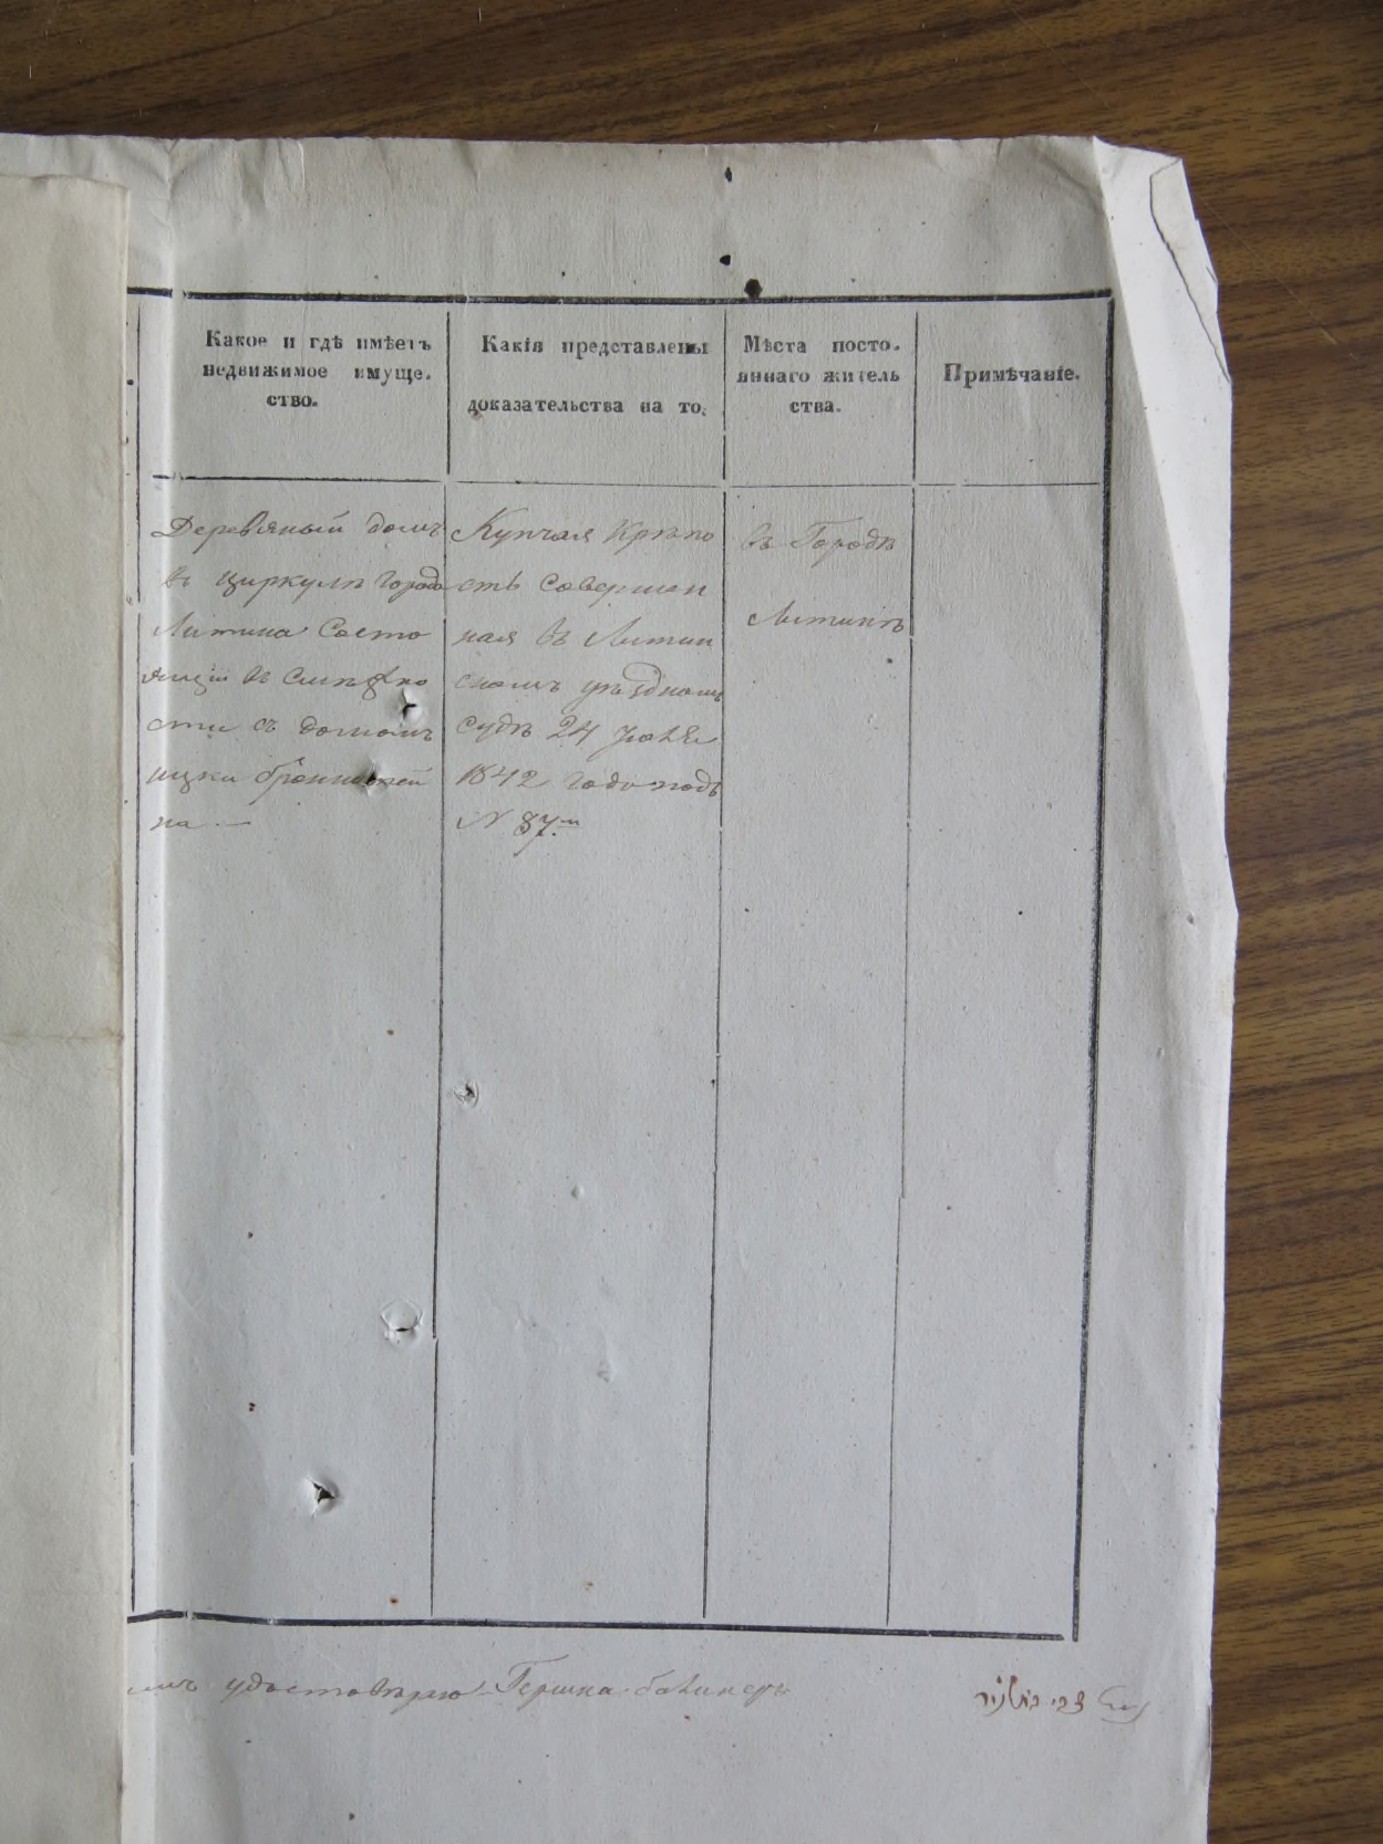 Какое и гдѣ имѣетъ
недвижимое имуще.
ство.
Какія представлены
доказательства на то.
Мѣста посто.
яннаго житель
ства.
Примѣчаніе.
Деревяный домъ
въ циркулѣ города
Литина Состо
ящій въ Смѣжно
сти съ домомъ
ицки
на —
Купчая Крѣпо
сть Совершен
ная въ Литин
скомъ уѣздномъ
судѣ 24 Июня
1842 года подъ
N 87.м
въ Городѣ
Литинѣ
удостовѣряю Гершка
צבי